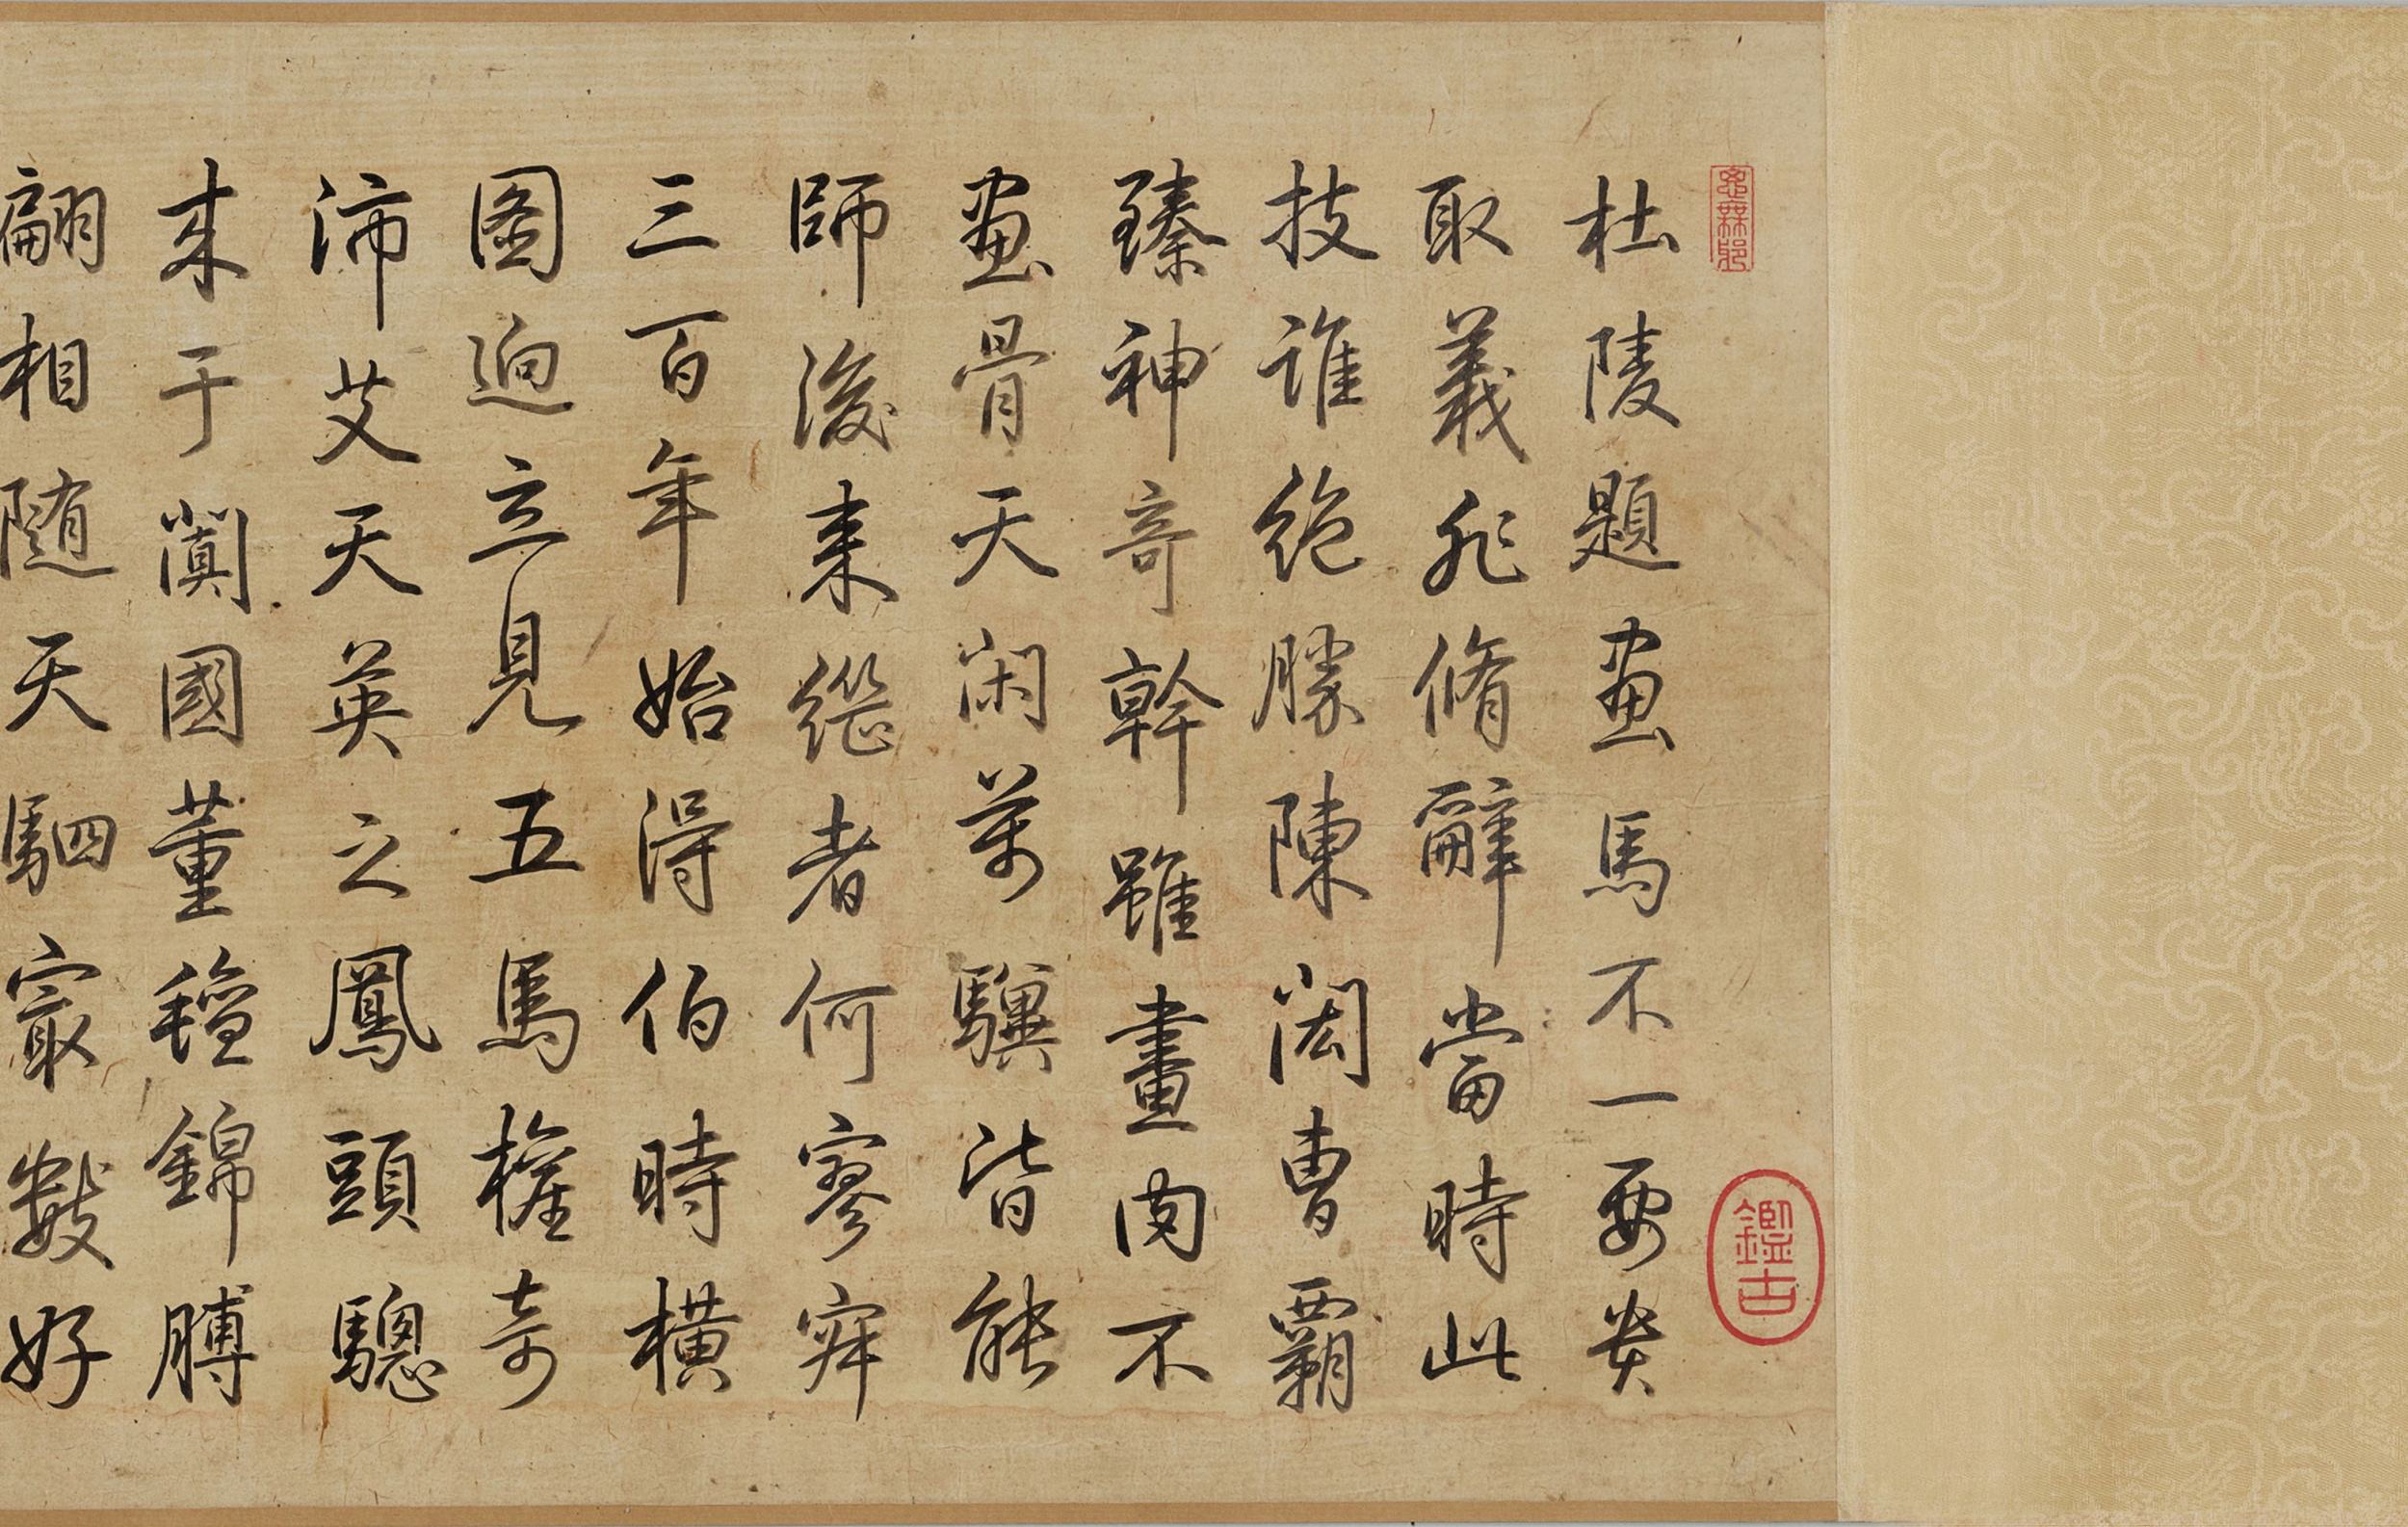 思無邪
鑑古
杜陵題畫馬不一要貴
取義非脩辭當時此
技誰絶勝陳閎曹霸
臻神奇幹雖畫肉不
畫骨天閑萬驥皆能
師後來繼者何寥寥
三百年始得伯時橫
圖迥立見五馬權奇
沛艾天英之鳳頭驄
來于闐國菫氊錦膊
翩相隨天駟最數好